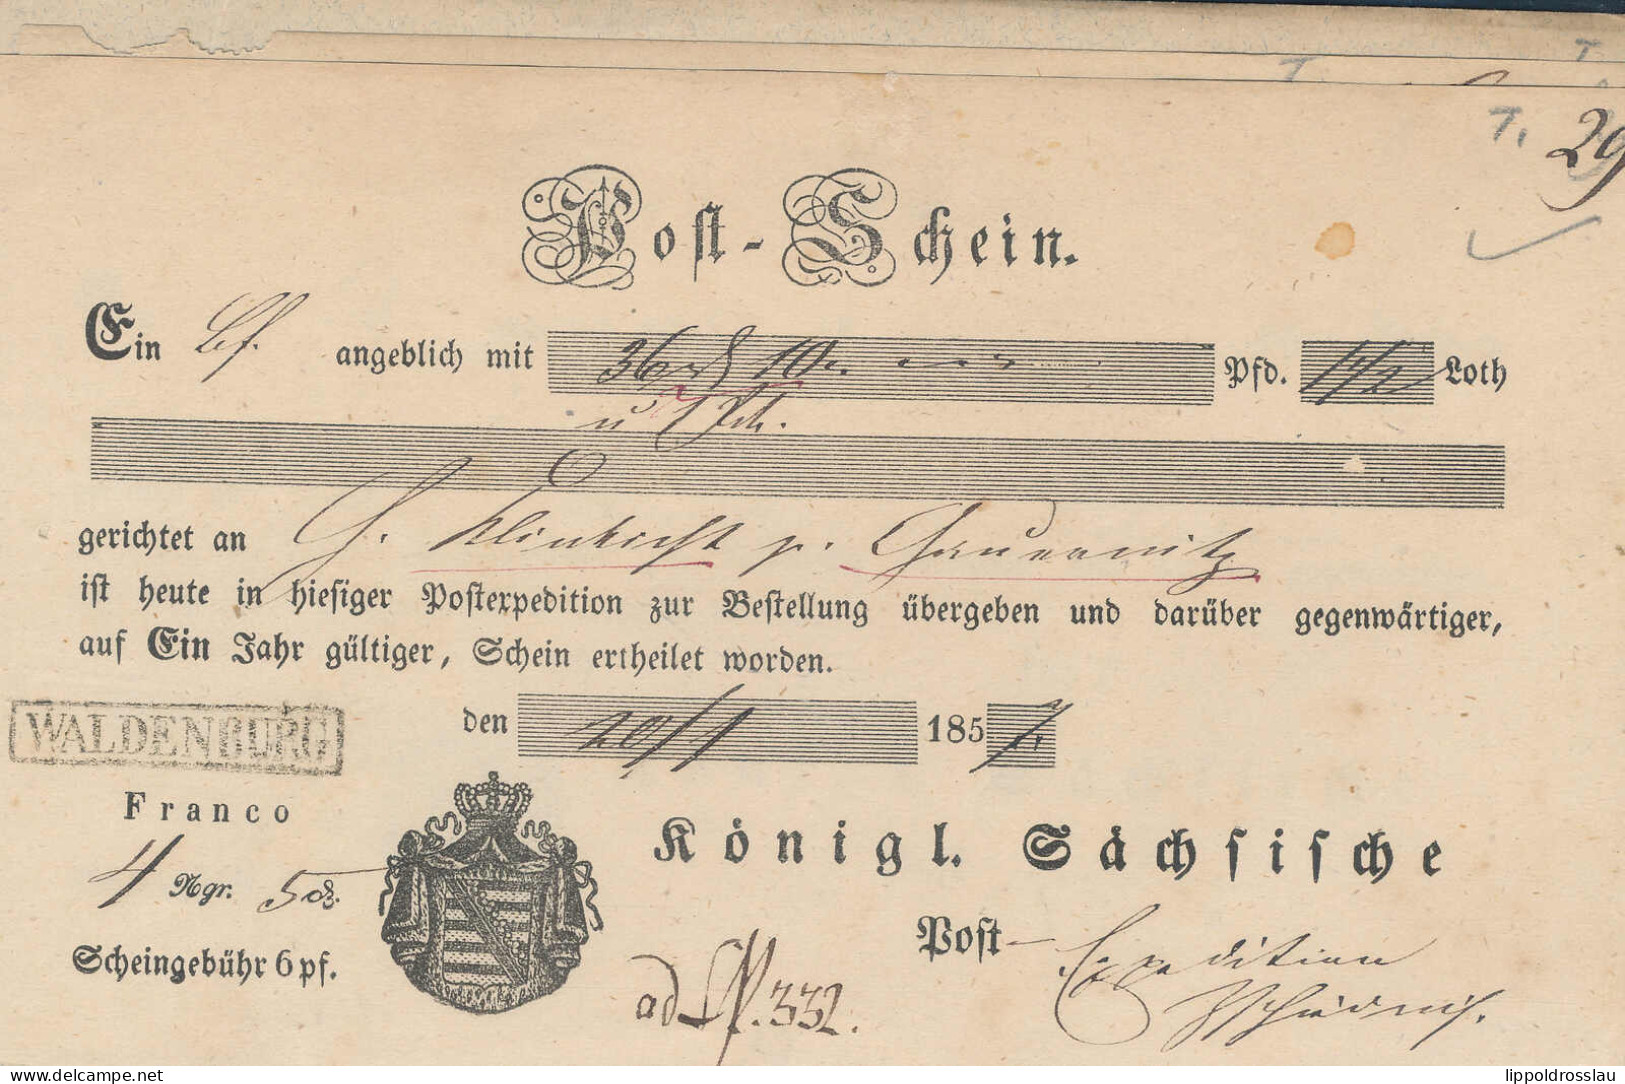 T.
T.
T. 29
Post-Schein.
Ein Bf. angeblich mit 36 10 Pfd. 1 1/2 Loth
u 1
gerichtet an G. Klinkicht p.
ist heute in hiesiger Postexpedition zur Bestellung übergeben und darüber gegenwärtiger,
auf Ein Jahr gültiger, Schein ertheilet worden.
WALDENBURG
den 20/1 1857.
Franco
4 Ngr. 5
Königl. Sächsische
Scheingebühr 6 pf.
Post-Expedition
ad 332.
delcampe.net
lippoldrosslau